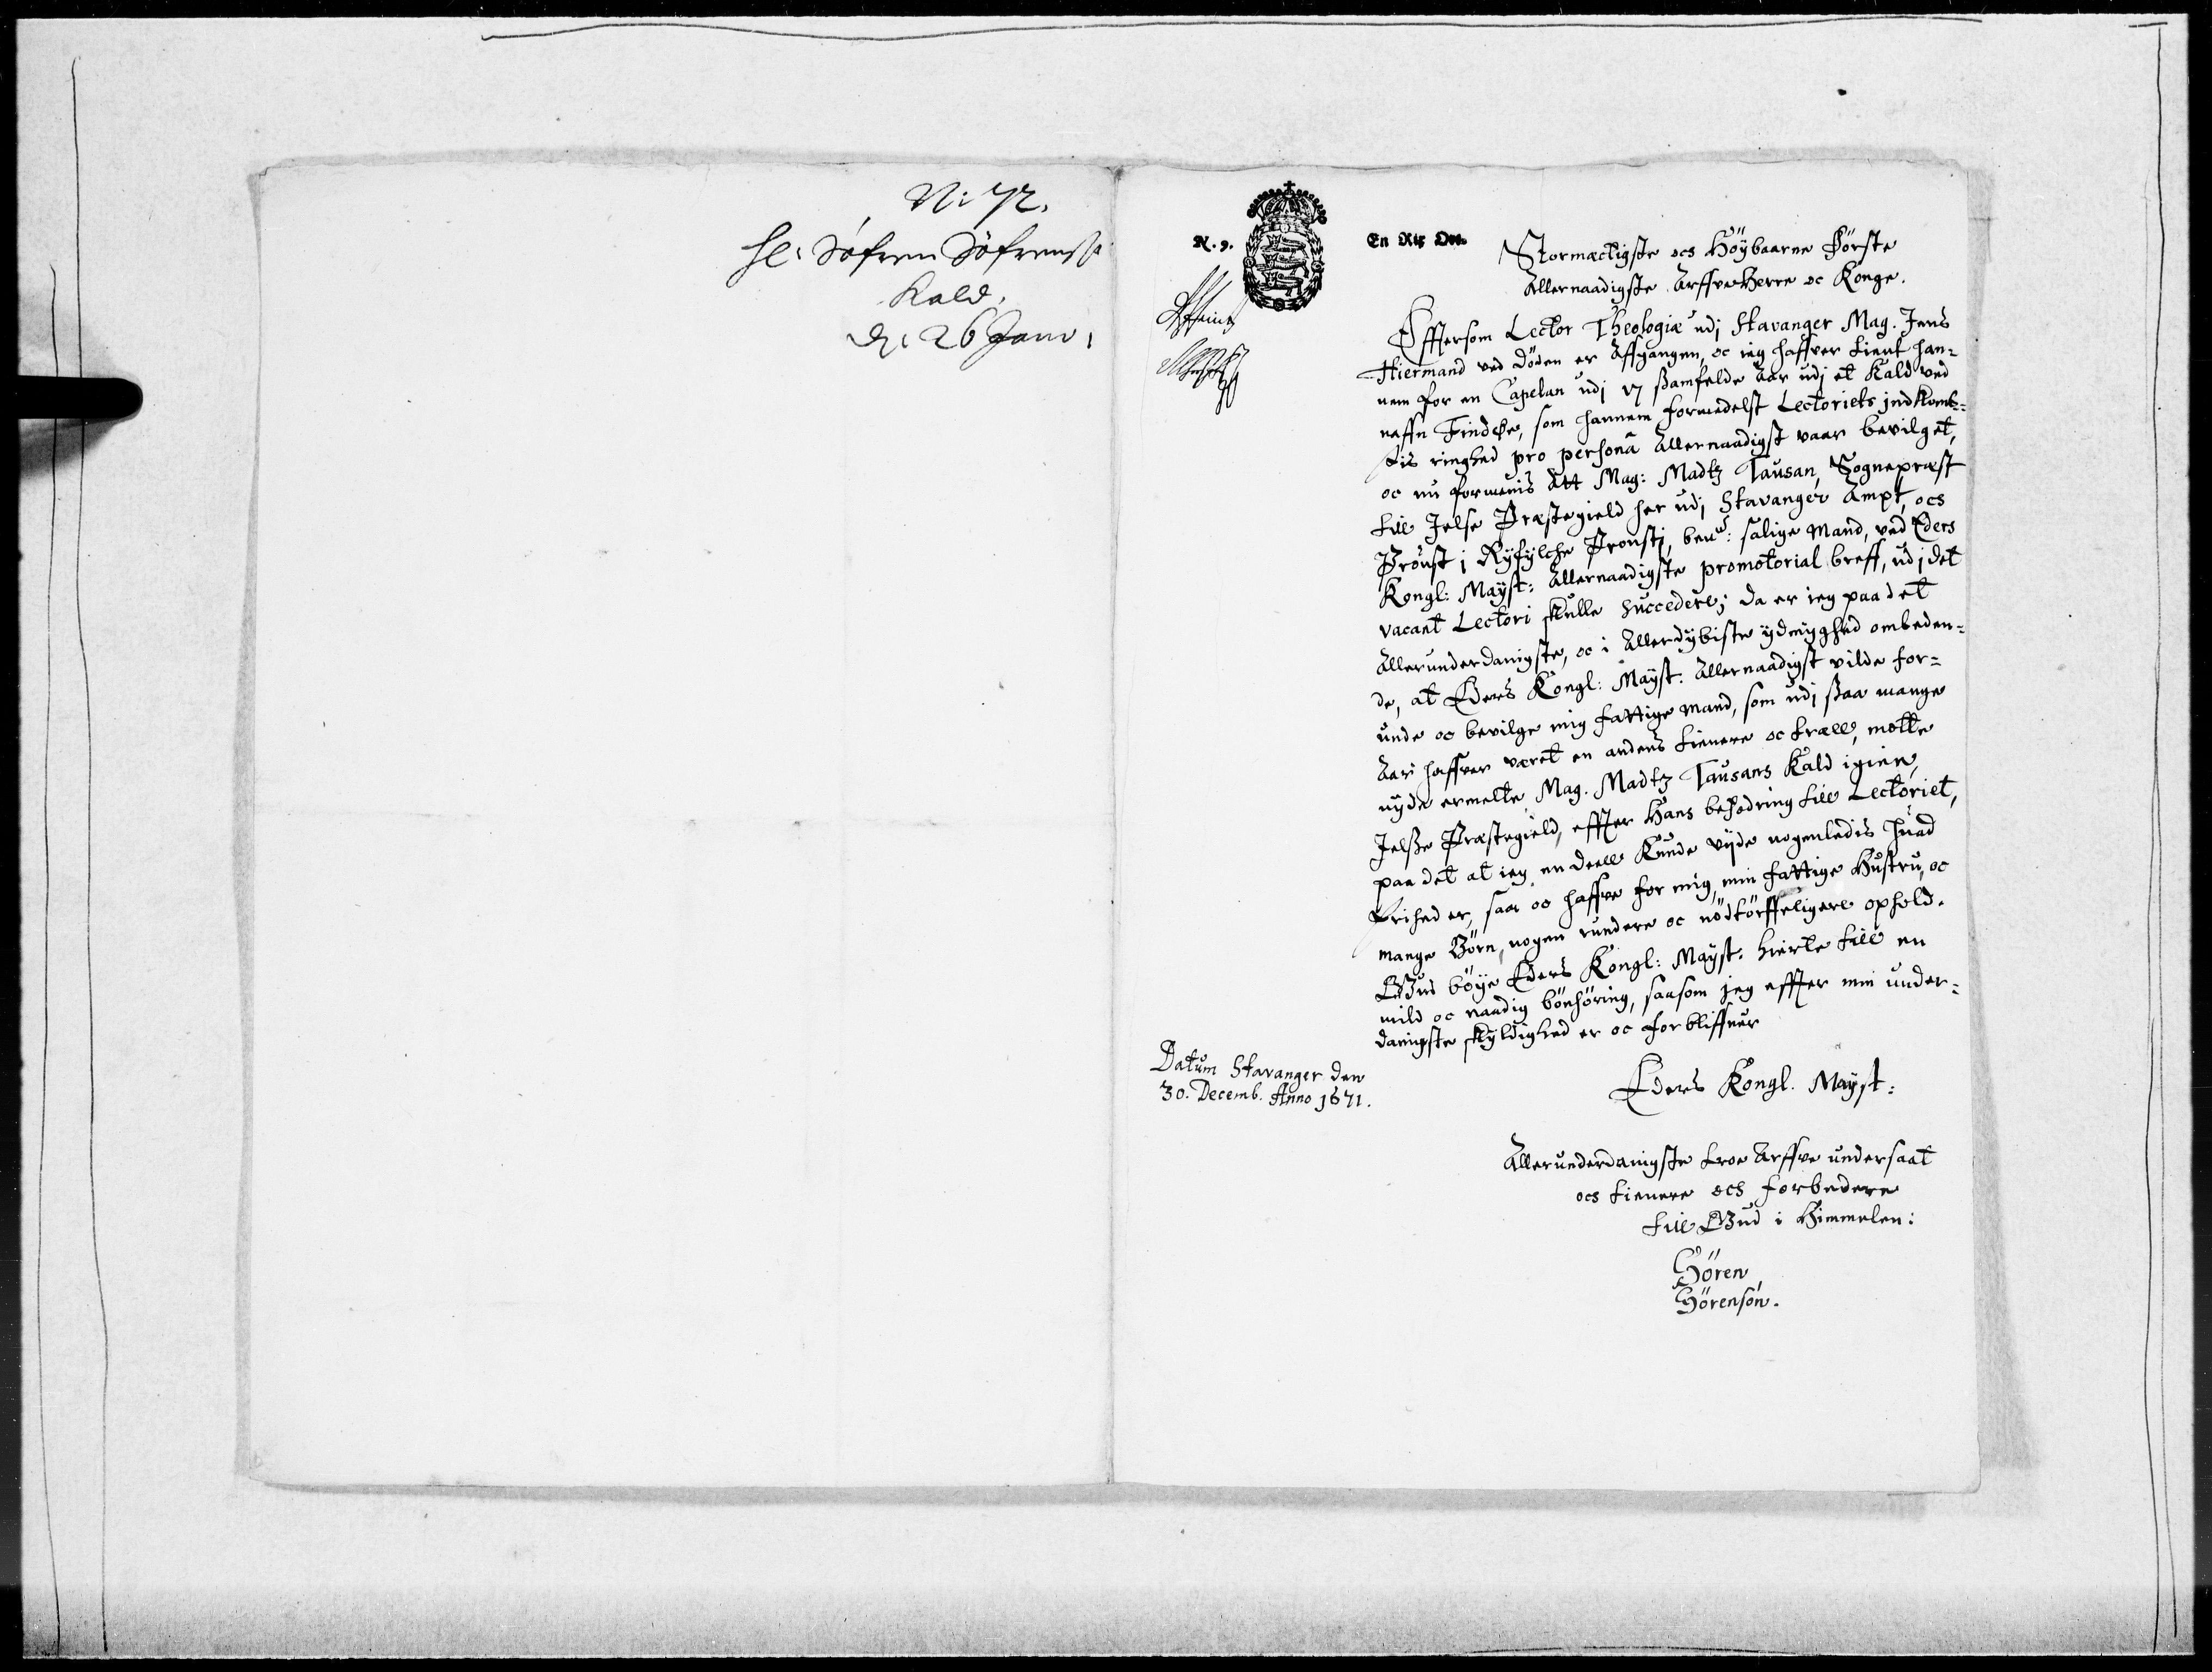 N: 72.
Hl: Söfren Söfrenss:
Kald.
d: 26 Janu:
N. 9.
En Rix Ort.
Stormectigste och Höÿbaarne Förste
Allernaadigste ArffveHerre oc Konge.
Efftersom Lector Theologiæ udj Stavanger Mag. Jens
Hiermand ved Döden er Affgangen, oc ieg haffver tient han=
nem for en Capelan udj 17 ssamfelde Aar udj et Kald ved
naffn Findöe, som hannem formedelst Lectoriets indkomb=
stis ringhed pro persona Allernaadigst vaar bevilget,
oc nu formenis Att Mag: Madtz Tausan, Sognepræst
till Jelse Præstegield her udj Stavanger Ampt, och
Pröust i Rÿfylche Proustj, bemt: salige Mand, ved Eders
Kongl: Maÿst: Allernaadigste promotorial breff, udj det
vacant Lectori skulle succedere; da er ieg paa det
Allerunderdanigste, oc i Allerdÿbiste ÿdmÿghed ombeden=
de, at Eders Kongl: Maÿst: Allernaadigst vilde for=
unde oc bevilge mig fattige Mand, som udj ssaa mange
Aar haffver veret en andens tienere oc træll, motte
nÿde ermelte Mag. Madtz Tausans Kald igien,
Jelsse Præstegield, effter Hans befodring till Lectoriet,
paa det at ieg en deell Kunde vide nogenledis huad
Frihed er, saa oc haffve for mig, min fattige Hustru, oc
mange Börn, nogen rundere oc nödtörffteligere ophold.
Gud böÿe Eders Kongl: Maÿst. hierte till en
mild oc naadig bönhöring, saasom jeg effter min under=
danigste skÿldighed er oc forbliffver
Datum Stavanger den
30. Decemb. Anno 1671.
Eders Kongl. Maÿst:
Allerunderdanigste troe Arffve undersaat
och tienere och forbedere
till Gud i Himmelen:
Sören
Sörensön.